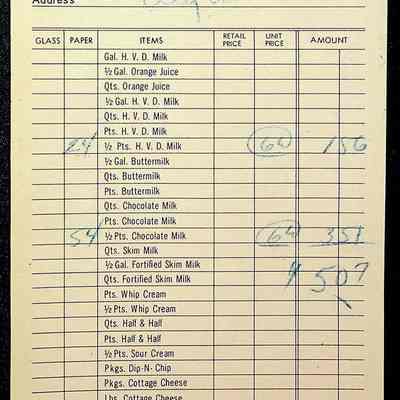 Address
GLASS PAPER ITEMS RETAIL PRICE UNIT PRICE AMOUNT
Gal. H. V. D. Milk
½ Gal. Orange Juice
Qts. Orange Juice
½ Gal. H. V. D. Milk
Qts. H. V. D. Milk
Pts. H. V. D. Milk
24 ½ Pts. H. V. D. Milk 6½ 156
½ Gal. Buttermilk
Qts. Buttermilk
Pts. Buttermilk
Qts. Chocolate Milk
Pts. Chocolate Milk
54 ½ Pts. Chocolate Milk 6½ 351
Qts. Skim Milk
½ Gal. Fortified Skim Milk $ 507
Qts. Fortified Skim Milk
Pts. Whip Cream
½ Pts. Whip Cream
Qts. Half & Half
Pts. Half & Half
½ Pts. Sour Cream
Pkgs. Dip-N- Chip
Pkgs. Cottage Cheese
Lbs. Cottage Cheese